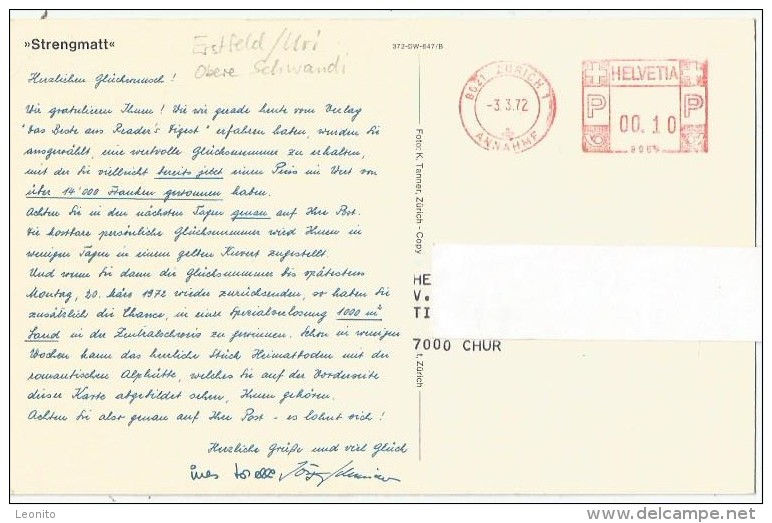 »Strengmatt«
Erstfeld/Uri
Obere Schwandi
372-DW-647/B
8021 ZÜRICH 1
-3.3.72
ANNAHME
HELVETIA
P P
00.10
Herzlichen Glückwunsch!
Wir gratulieren Ihnen! Wie wir gerade heute vom Verlag
"Das Beste aus Reader's Digest" erfahren haben, wurden Sie
ausgewählt, eine wertvolle Glücksnummer zu erhalten,
mit der Sie vielleicht bereits jetzt einen Preis im Wert von
über 14'000 Franken gewonnen haben.
Achten Sie in den nächsten Tagen genau auf Ihre Post.
Die kostbare persönliche Glücksnummer wird Ihnen in
wenigen Tagen in einem gelben Kuvert zugestellt.
Und wenn Sie dann die Glücksnummer bis spätestens
Montag, 20. März 1972 wieder zurücksenden, so haben Sie
zusätzlich die Chance, in einer Spezialverlosung 1000 m²
Land in der Zentralschweiz zu gewinnen. Schon in wenigen
Wochen kann das herrliche Stück Heimatboden mit der
romantischen Alphütte, welches Sie auf der Vorderseite
dieser Karte abgebildet sehen, Ihnen gehören.
Achten Sie also genau auf Ihre Post - es lohnt sich!
Herzliche Grüße und viel Glück
Ines
Foto: K. Tanner, Zürich - Copy
t, Zürich
HE
V.
TI
7000 CHUR
delcampe.net